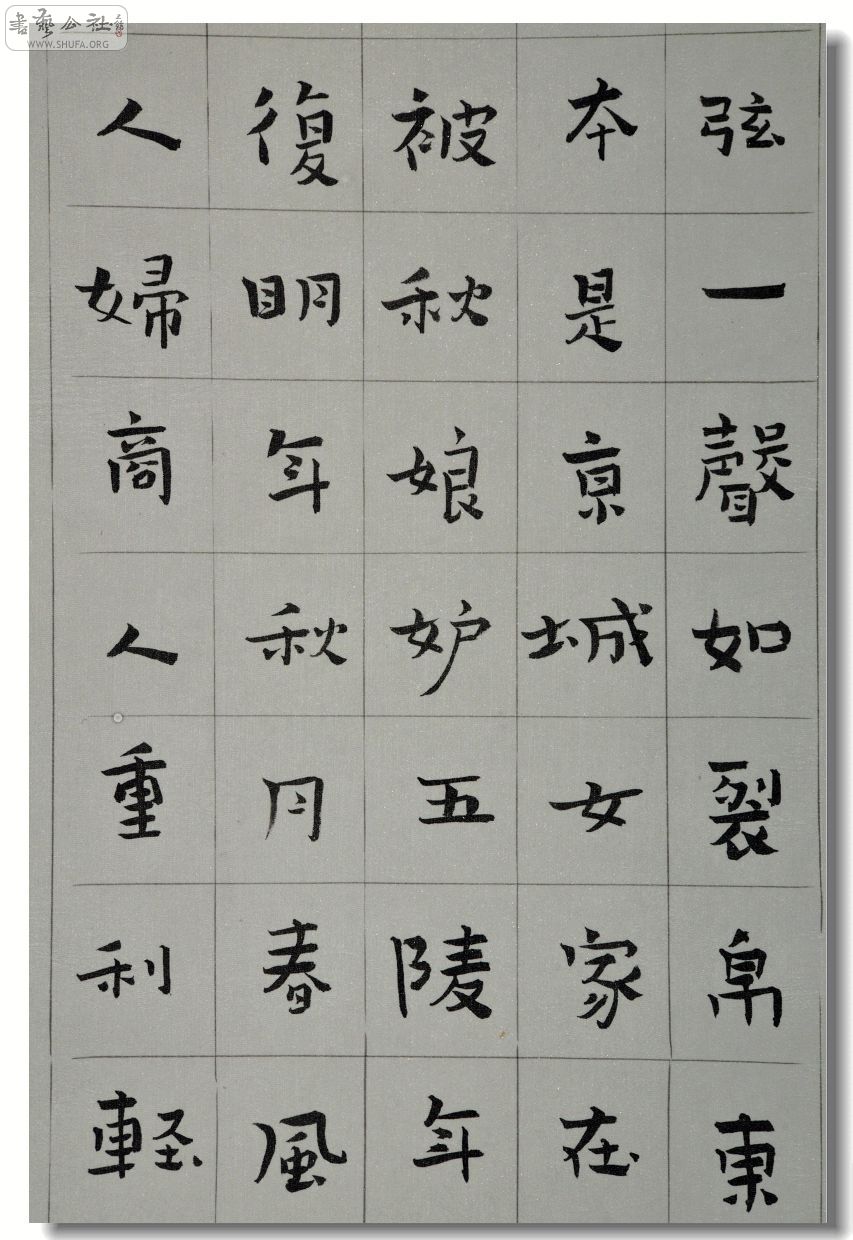 弦一聲如裂帛東
本是京城女家在
被秋娘妒五陵年
復明年秋月春風
人婦商人重利軽
書藝公社
WWW.SHUFA.ORG